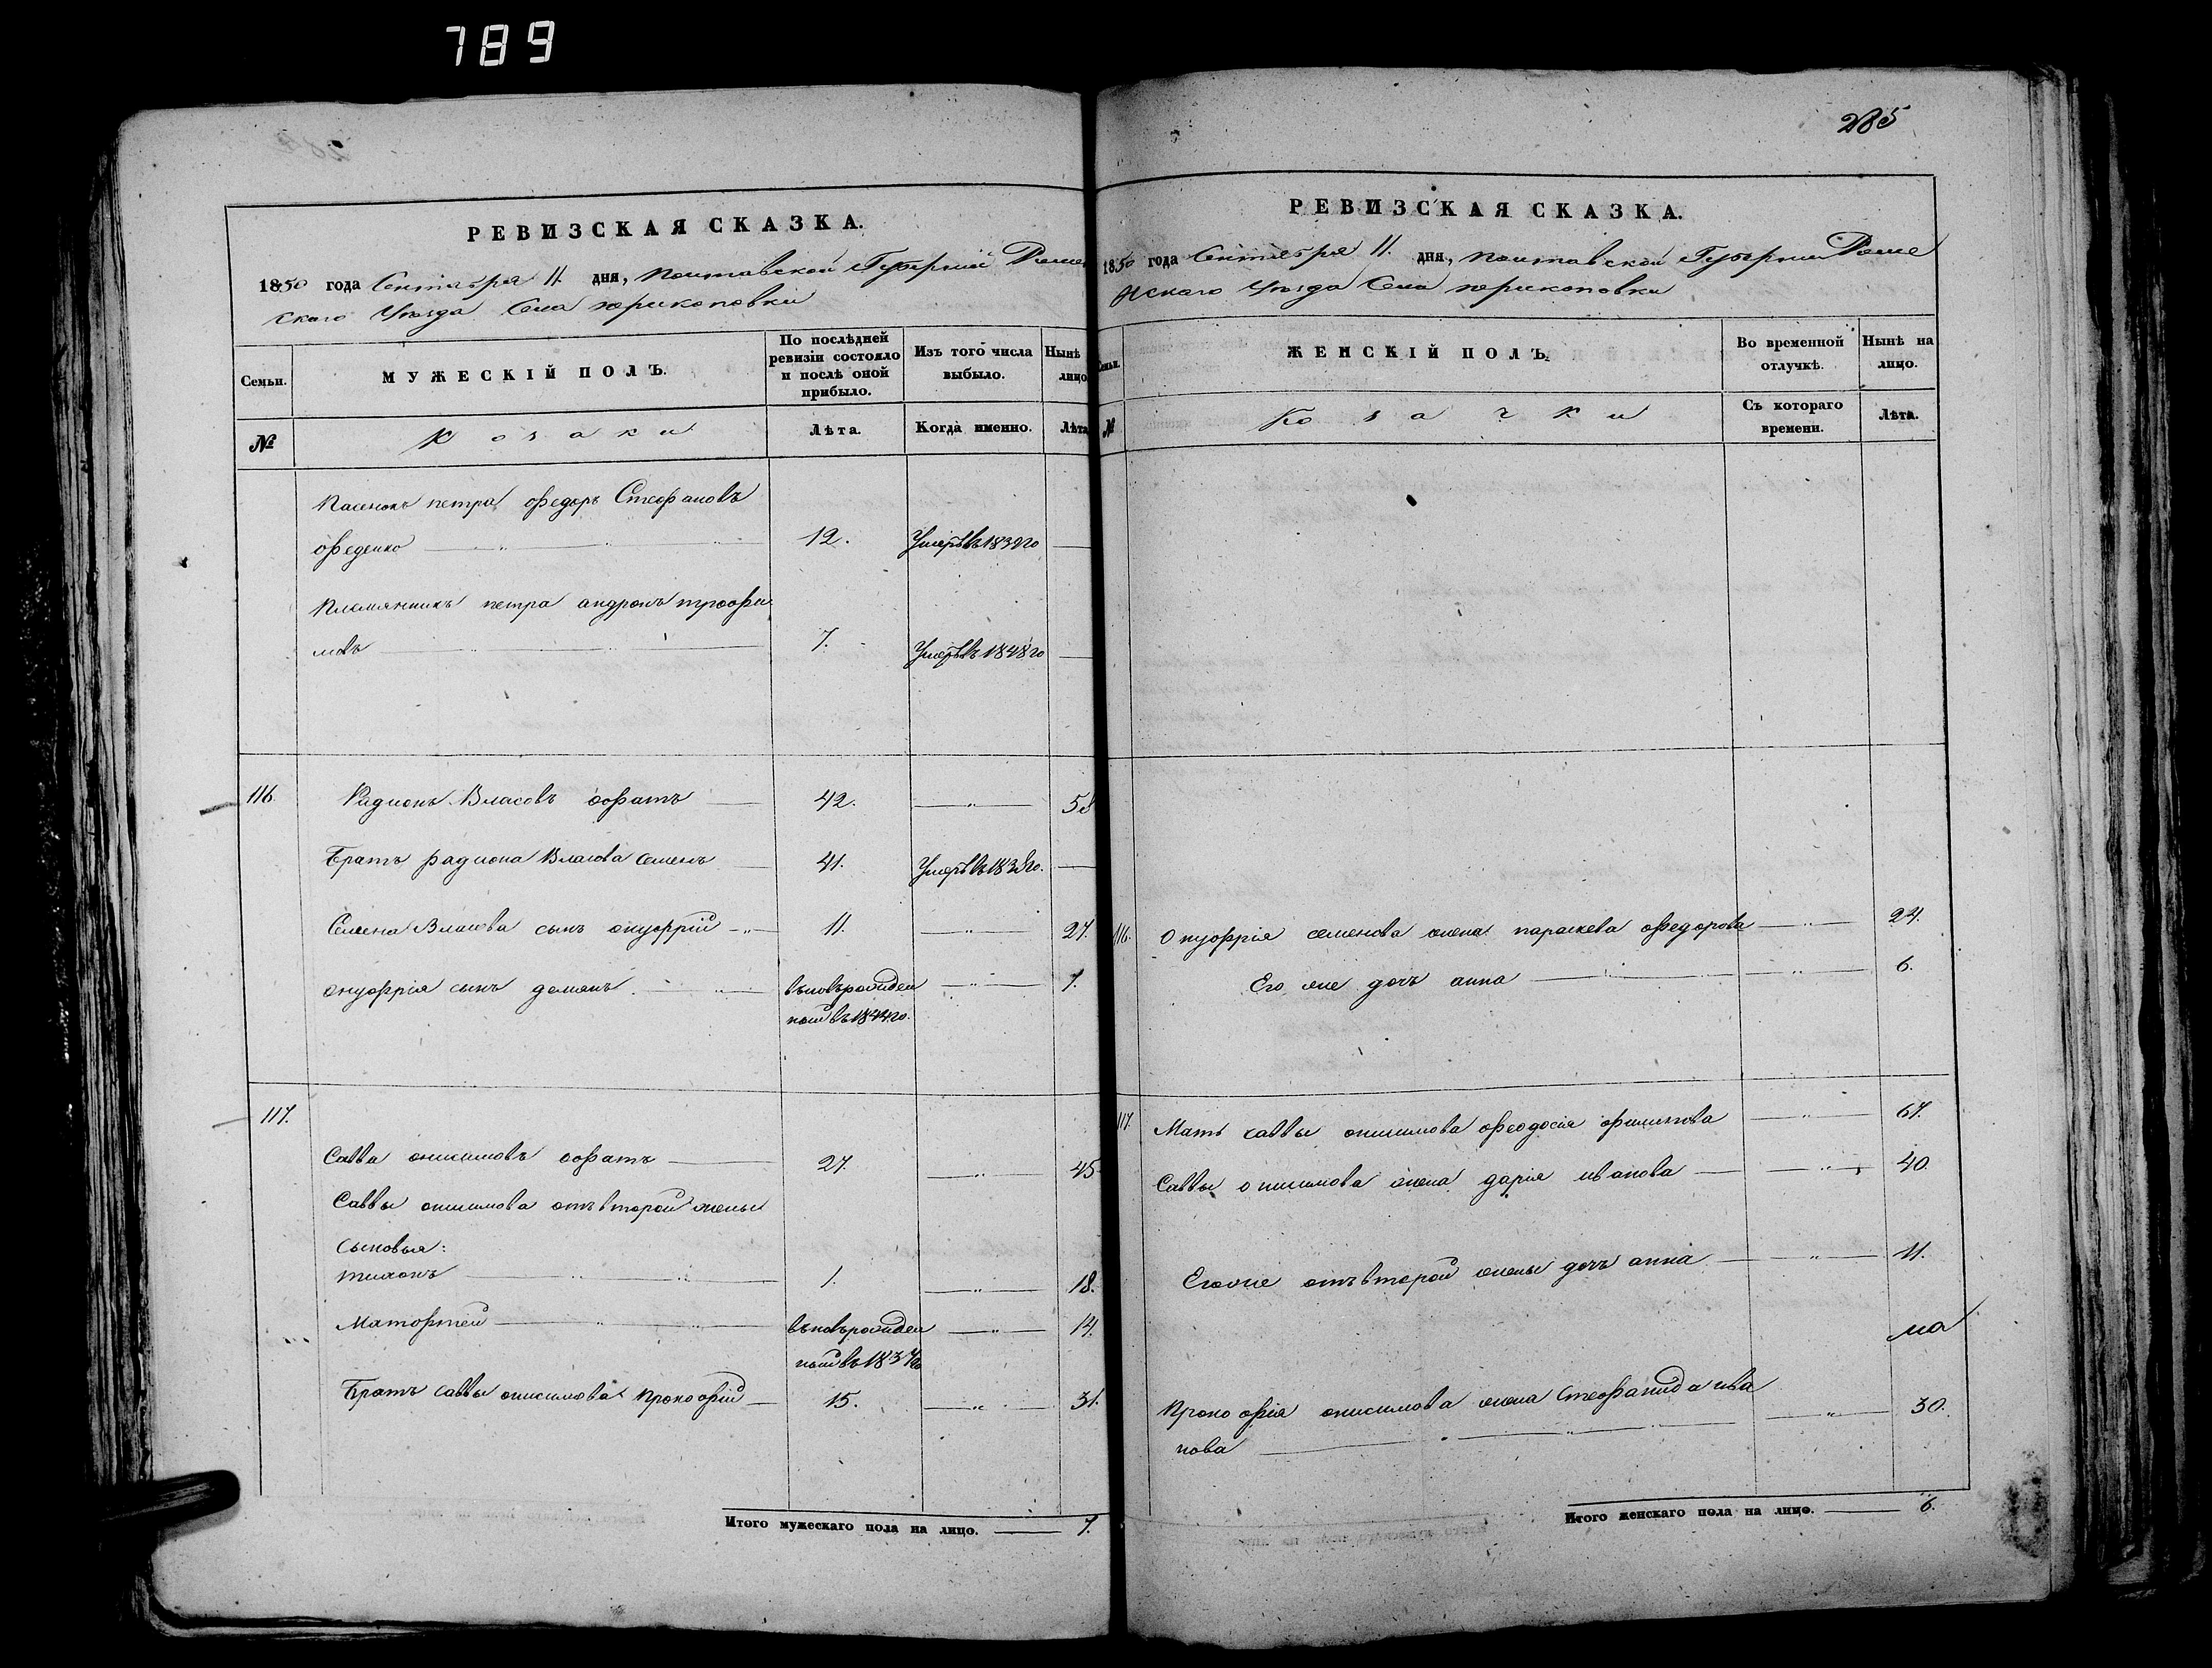 789
285
РЕВИЗСКАЯ СКАЗКА.
1850 года Сентября 11. дня, полтавской Губерніи Роме
нскаго Уѣзда Села юрикоповки
Семьи.
МУЖЕСКІЙ ПОЛЪ.
По послѣдней ревизіи состояло и послѣ оной прибыло.
Изъ того числа выбыло.
Нынѣ лицо
№
Козаки
Лѣта.
Когда именно.
Лѣта
Пасенокъ петра федоръ Стефановъ
феденко 12. Умеръ въ 1839го
племянникъ петра андронъ трофи
мовъ 7. Умеръ въ 1848го
116. Радионъ Власовъ 42. 58
Братъ радиона Власова семенъ 41. Умеръ въ 1838го.
Семена Власова сынъ онуфрій 11. 27.
онуфрія сынъ демянъ вновърожден 7.
ный въ 1844го.
117.
Савва онисимовъ 27. 45
Саввы онисимова отъ второй жены
сыновья:
тихонъ 1. 18.
Матфтей вновърожден 14.
ный въ 1837го
Братъ саввы онисимова Прокофій 15. 31.
Итого мужескаго пола на лицо. 7.
РЕВИЗСКАЯ СКАЗКА.
1850 года Сентября 11. дня, полтавской Губерніи Роме
нскаго Уѣзда Села юрикоповки
Семьи.
ЖЕНСКІЙ ПОЛЪ.
Во временной отлучкѣ.
Нынѣ на лицо.
№
Козачки
Съ котораго времени.
Лѣта.
116. Онуфрія семенова жена параскева федорова 24.
Его же дочь анна 6.
117. Мать саввы онисимова феодосія 67.
Саввы онисимова жена дарія иванова 40.
Егоже отъ второй жены дочь анна 11.
Прокофія онисимова жена Стефанида ива
нова 30.
Итого женскаго пола на лицо. 6.